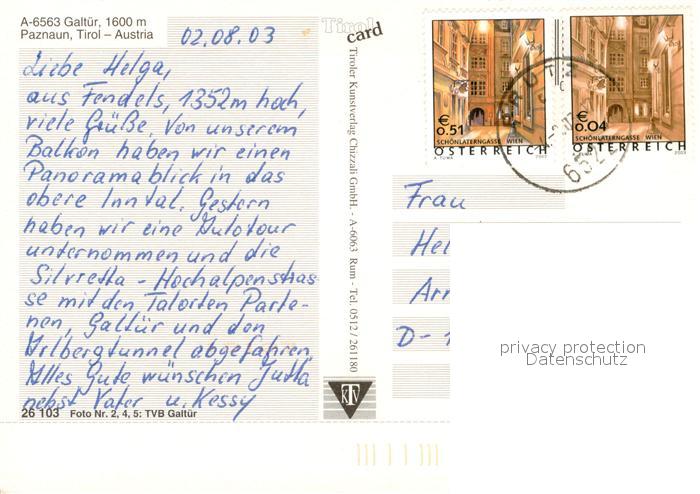 A-6563 Galtür, 1600 m
Paznaun, Tirol – Austria
02.08.03
Liebe Helga,
aus Fendels, 1352m hoch,
viele Grüße. Von unserem
Balkon haben wir einen
Panoramablick in das
obere Inntal. Gestern
haben wir eine Autotour
unternommen und die
Silvretta - Hochalpenstras-
se mit den Talorten Parte-
nen, Galtür und den
Arlbergtunnel abgefahren.
Alles Gute wünschen Jutta
nebst Vater u. Kessy
26 103 Foto Nr. 2, 4, 5: TVB Galtür
Tirol
card
Tiroler Kunstverlag Chizzali GmbH. - A-6063 Rum - Tel. 0512 / 261180
KTV
€
0.51
SCHÖNLATERNGASSE WIEN
ÖSTERREICH
2003
€
0.04
SCHÖNLATERNGASSE WIEN
ÖSTERREICH
2003
Frau
Hel
Arn
D-1
privacy protection
Datenschutz